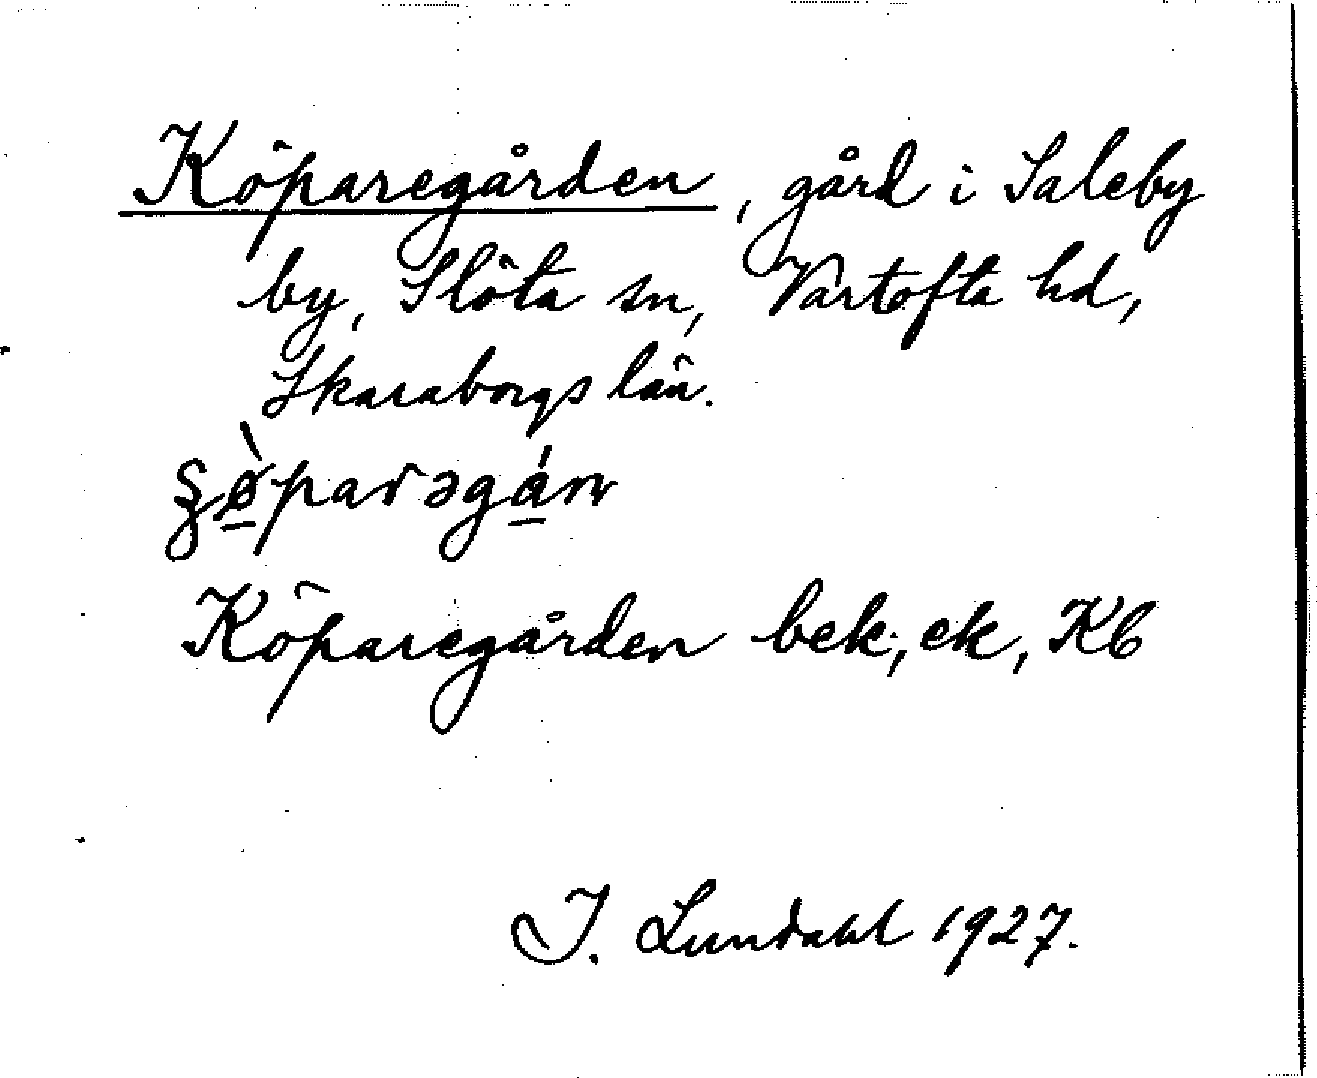 Köparegården, gård i Saleby
by, Slöta sn, Vartofta hd,
Skaraborgs län.
Köparegården bek., ek, Kb
I. Lundahl 1927.